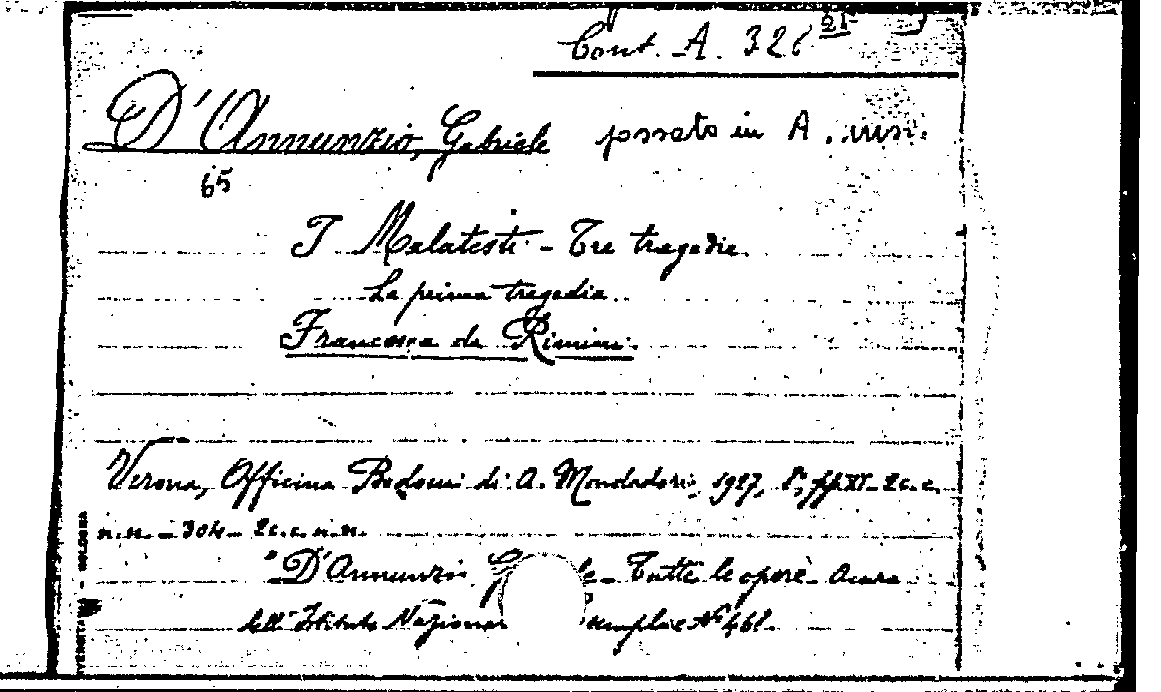 Cont. A. 326 21
D'Annunzio, Gabriele passato in A.
65
I Malatesti - Tre tragedie.
La prima tragedia.
Francesca da Rimini.
Verona, Officina Bodoni di A. Mondadori, 1927, 8°, pp. XI - 2 c. c.
n. n. - 304 - 2 c. c. n. n.
"D'Annunzio - Tutte le opere - a cura
dell'Istituto Nazional N° 461.
BOLOGNA